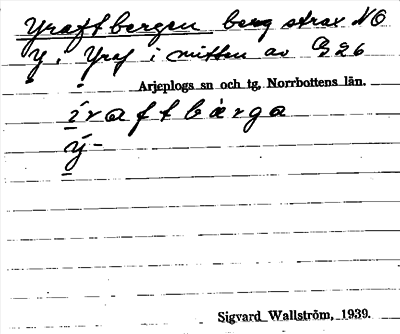 Yraftbergen berg strax NO
Y. Yraf i mitten av G26
Arjeplogs sn och tg, Norrbottens län.
íraftbàrga
ý-
Sigvard Wallström, 1939.